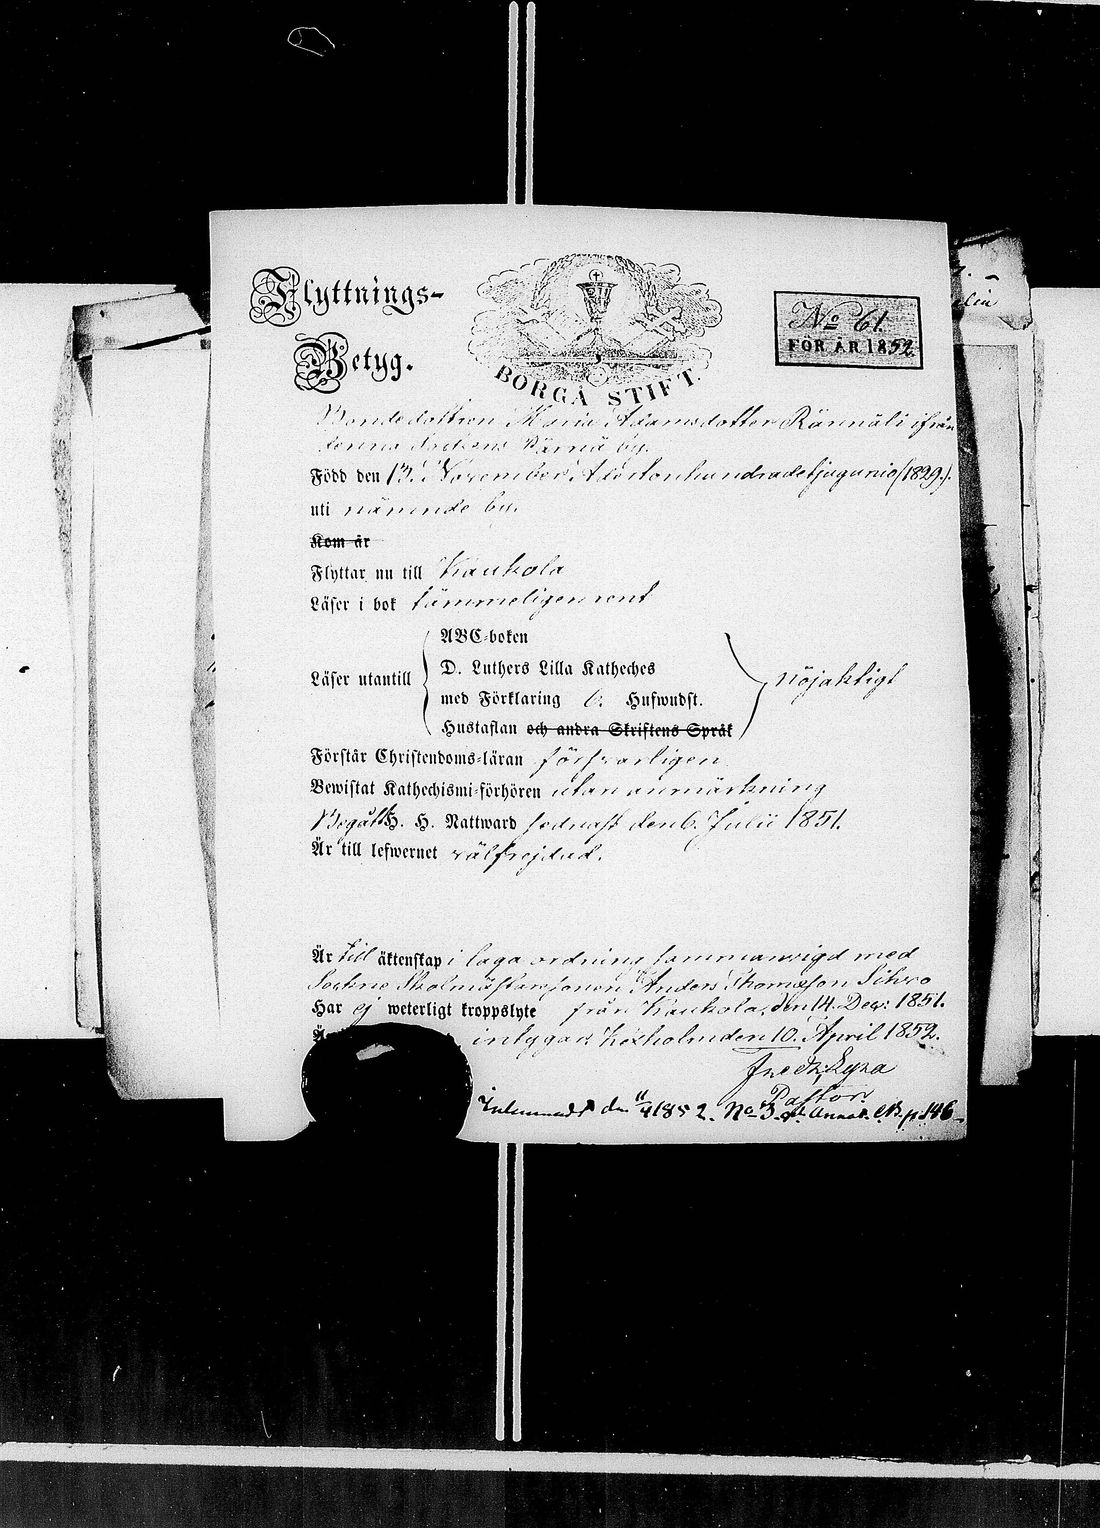 Flyttnings-
Betyg.
BORGÅ STIFT.
No 61.
FÖR ÅR 1852.
Bondedottren Maria Adamsdotter Kärnäli ifrån
denna Sockens Kärnä by.
Född den 13. November Adertonhundradetjugunio (1829.).
uti nämnde by.
Kom år
Flyttar nu till Kaukola
Läser i bok tämmeligen rent
Läser utantill
ABC-boken
D. Luthers Lilla Katheches
med Förklaring 6. Hufwudst.
Hustaflan och andra Skriftens Språk
nöjaktigt
Förstår Christendoms-läran försvarligen
Bewistat Kathechismi-förhören utan anmärkning
Begått H. H. Nattward sednast den 6. Julii 1851.
Är till lefwernet välfrejdad.
Är till äktenskap i laga ordning sammanvigd med
Sockne Skolmästarsonen Anders Thomasson Sihvo
Har ej weterligt kroppslyte från Kaukola, den 14. Dec: 1851.
intygar Kexholm den 10. April 1852.
Pastor.
Inlemnadt den 11/4 1852. No 3. Annot. CB. p. 146